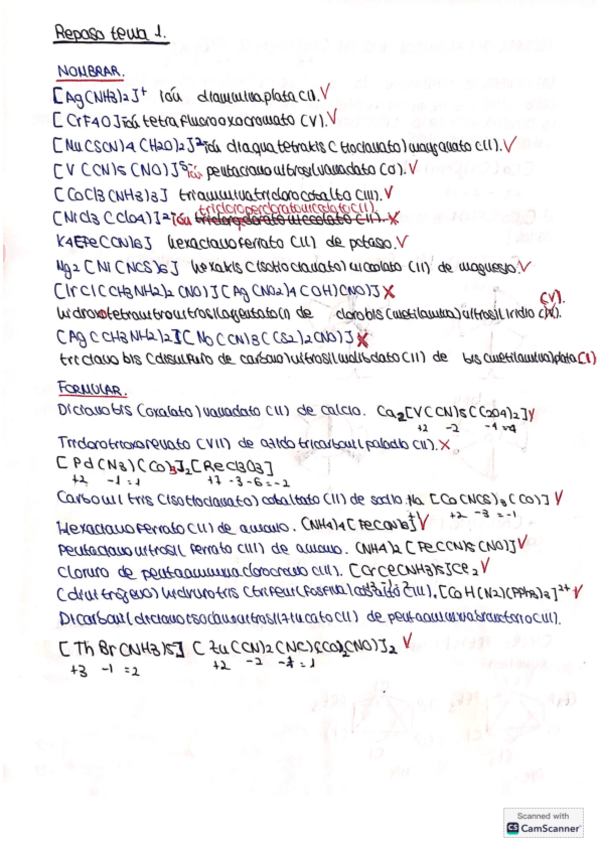 Repaso tema 1.
NOMBRAR.
[Ag(NH3)2]+ ión diamminaplata(I). V
[CrF4O]- ión tetrafluorooxocromato (V). V
[Mn(SCN)4(H2O)2]2- ión diaquatetrakis(tiocianato)manganato(II). V
[V(CN)5(NO)]5- ión pentacianonitrosilvanadato(0). V
[CoCl3(NH3)3] triamminatriclorocobalto(III). V
tricloropercloratonicolato(II)
[NiCl3(ClO4)]2- ión X
K4[Fe(CN)6] hexacianoferrato (II) de potasio. V
Mg2[Ni(NCS)6] hexakis(isotiocianato)niccolato (II) de magnesio. V
[IrCl(CH3NH2)2(NO)][Ag(NO2)4(OH)(NO)] X
hidroxotetranitronitrosilargentato(I) de clorobis(metilamina)nitrosil iridio (V).
[Ag(CH3NH2)2][No(CN)3(CS2)2(NO)] X
triciano bis(disulfuro de carbono)nitrosilmolibdato(II) de bis(metilamina)plata(I)
FORMULAR.
Dicianobis(oxalato)vanadato(II) de calcio. Ca2[V(CN)2(C2O4)2] V
+2 -2 -4 = -4
Triclorotrioxorenato(VII) de azido tricarbonil paladio(II). X
[Pd(N3)(CO)3]2[ReCl3O3]
+2 -1 = 1 +7 -3 -6 = -2
Carbonil tris(isotiocianato)cobaltato(II) de sodio. Na[Co(NCS)3(CO)] V
+1 +2 -3 = -1
Hexacianoferrato(II) de amonio. (NH4)4[Fe(CN)6] V
Pentacianonitrosil ferrato(III) de amonio. (NH4)2[Fe(CN)5(NO)] V
Cloruro de pentaamminaclorocromo(III). [CrCl(NH3)5]Cl2 V
(dinitrógeno)hidrurotris(trifenilfosfina)cobalto(III). [CoH(N2)(PPh3)3]2+ V
Dicarbonildicianoisocianonitrosilzincato(II) de pentaamminabromotorio(III).
[ThBr(NH3)5][Zn(CN)2(NC)(CO)2(NO)]2 V
+3 -1 = 2 +2 -2 -1 = 1
Scanned with
CS CamScanner